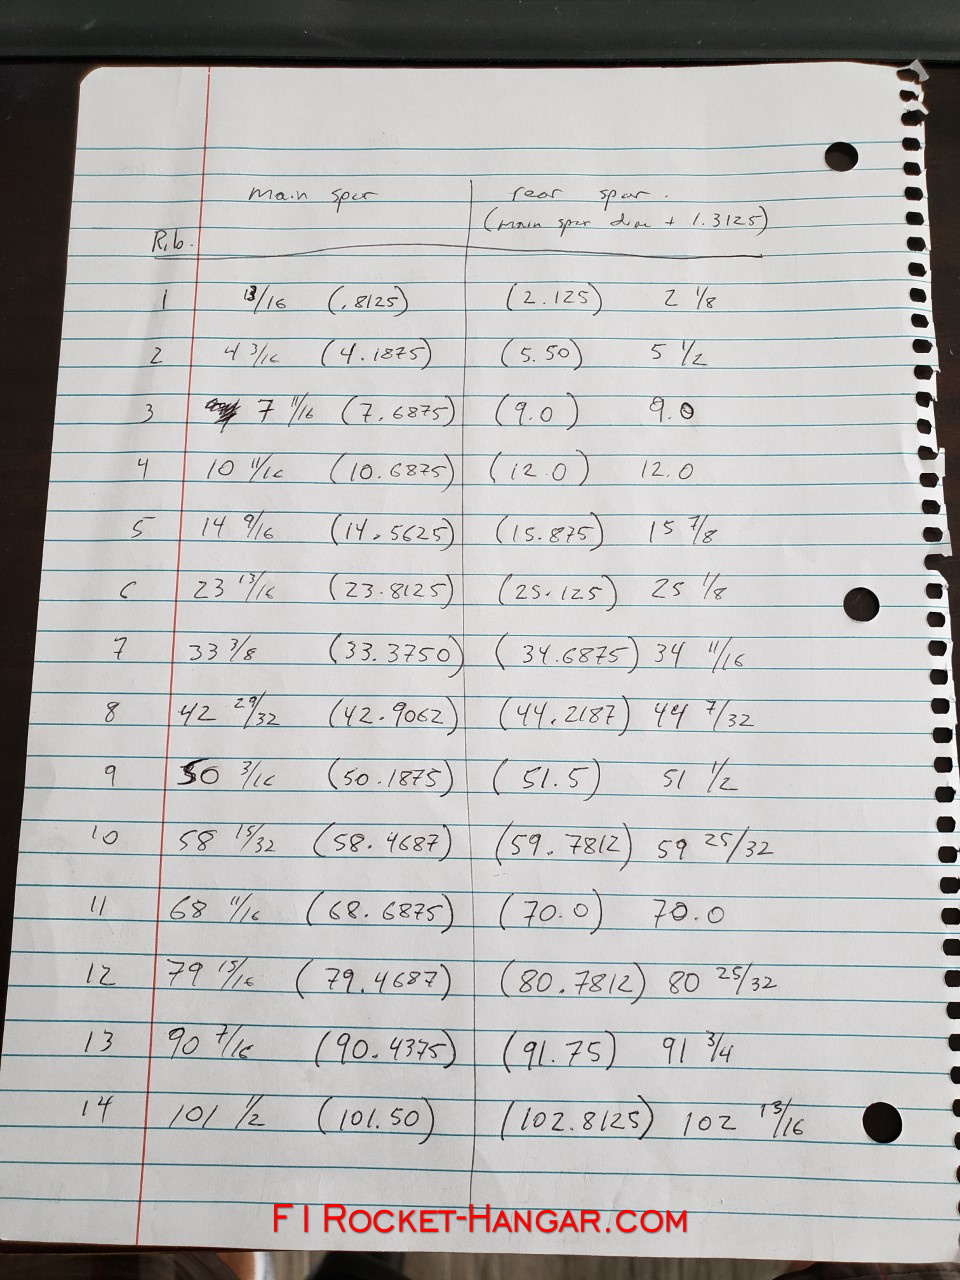 main spar rear spar.
(main spar dim + 1.3125)
Rib.
1 13/16 (.8125) (2.125) 2 1/8
2 4 3/16 (4.1875) (5.50) 5 1/2
3 7 11/16 (7.6875) (9.0) 9.0
4 10 11/16 (10.6875) (12.0) 12.0
5 14 9/16 (14.5625) (15.875) 15 7/8
6 23 13/16 (23.8125) (25.125) 25 1/8
7 33 3/8 (33.3750) (34.6875) 34 11/16
8 42 29/32 (42.9062) (44.2187) 44 7/32
9 50 3/16 (50.1875) (51.5) 51 1/2
10 58 15/32 (58.4687) (59.7812) 59 25/32
11 68 11/16 (68.6875) (70.0) 70.0
12 79 15/16 (79.4687) (80.7812) 80 25/32
13 90 7/16 (90.4375) (91.75) 91 3/4
14 101 1/2 (101.50) (102.8125) 102 13/16
F1 Rocket-Hangar.com